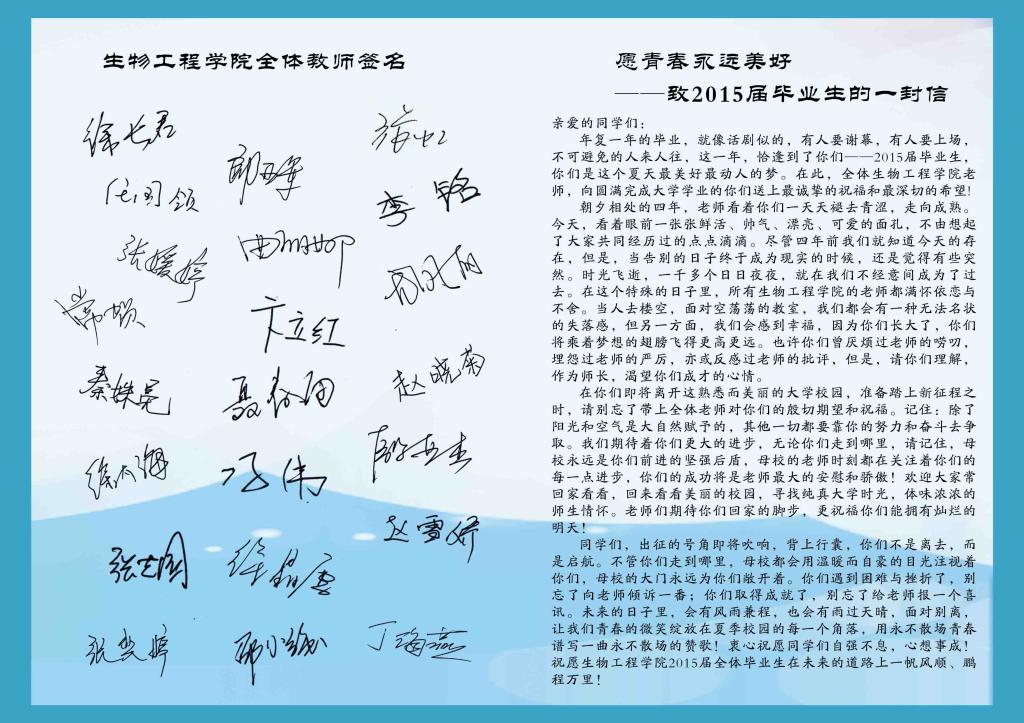 生物工程学院全体教师签名
徐长君
张媛婷
常娟
卞立红
李铭
赵晓菊
冯伟
赵雪娇
张志国
丁海燕
愿青春永远美好
——致2015届毕业生的一封信
亲爱的同学们：
年复一年的毕业，就像话剧似的，有人要谢幕，有人要上场，
不可避免的人来人往，这一年，恰逢到了你们——2015届毕业生，
你们是这个夏天最美好最动人的梦。在此，全体生物工程学院老
师，向圆满完成大学学业的你们送上最诚挚的祝福和最深切的希望!
朝夕相处的四年，老师看着你们一天天褪去青涩，走向成熟。
今天，看着眼前一张张鲜活、帅气、漂亮、可爱的面孔，不由想起
了大家共同经历过的点点滴滴。尽管四年前我们就知道今天的存
在，但是，当告别的日子终于成为现实的时候，还是觉得有些突
然。时光飞逝，一千多个日日夜夜，就在我们不经意间成为了过
去。在这个特殊的日子里，所有生物工程学院的老师都满怀依恋与
不舍。当人去楼空，面对空荡荡的教室，我们都会有一种无法名状
的失落感，但另一方面，我们会感到幸福，因为你们长大了，你们
将乘着梦想的翅膀飞得更高更远。也许你们曾厌烦过老师的唠叨，
埋怨过老师的严厉，亦或反感过老师的批评，但是，请你们理解，
作为师长，渴望你们成才的心情。
在你们即将离开这熟悉而美丽的大学校园，准备踏上新征程之
时，请别忘了带上全体老师对你们的殷切期望和祝福。记住：除了
阳光和空气是大自然赋予的，其他一切都要靠你的努力和奋斗去争
取。我们期待着你们更大的进步，无论你们走到哪里，请记住，母
校永远是你们前进的坚强后盾，母校的老师时刻都在关注着你们的
每一点进步，你们的成功将是老师最大的安慰和骄傲！欢迎大家常
回家看看，回来看看美丽的校园，寻找纯真大学时光，体味浓浓的
师生情怀。老师们期待你们回家的脚步，更祝福你们能拥有灿烂的
明天！
同学们，出征的号角即将吹响，背上行囊，你们不是离去，而
是启航。不管你们走到哪里，母校都会用温暖而自豪的目光注视着
你们，母校的大门永远为你们敞开着。你们遇到困难与挫折了，别
忘了向老师倾诉一番；你们取得成就了，别忘了给老师报一个喜
讯。未来的日子里，会有风雨兼程，也会有雨过天晴，面对别离，
让我们青春的微笑绽放在夏季校园的每一个角落，用永不散场青春
谱写一曲永不散场的赞歌！衷心祝愿同学们自强不息，心想事成！
祝愿生物工程学院2015届全体毕业生在未来的道路上一帆风顺、鹏
程万里！